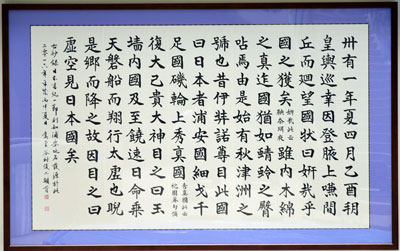 卅有一年夏四月乙酉朔
皇輿巡幸因登腋上嗛間
丘而廻望國状曰姸哉乎
國之獲矣姸哉此云鞅奈珥夜雖内木綿
之眞迮國猶如蜻蛉之臀
呫焉由是始有秋津洲之
號也昔伊弉諾尊目此國
曰日本者浦安國細戈千
足國磯輪上秀眞國秀眞國此云袍圖莽句儞
復大己貴大神目之曰玉
墻内國及至饒速日命乘
天磐船而翔行太虛也睨
是郷而降之故因目之曰
虛空見日本國矣